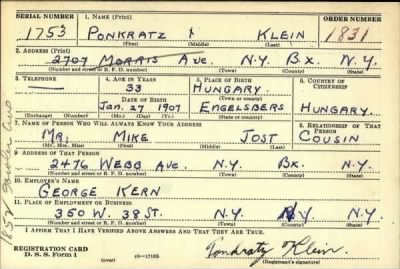 SERIAL NUMBER 1. NAME (Print) ORDER NUMBER
1753 PONKRATZ KLEIN 1831
(First) (Middle) (Last)
2. ADDRESS (Print)
2707 MORRIS AVE. N.Y. BX. N.Y.
(Number and street or R. F. D. number) (Town) (County) (State)
3. TELEPHONE 4. AGE IN YEARS 5. PLACE OF BIRTH 6. COUNTRY OF CITIZENSHIP
33 HUNGARY
DATE OF BIRTH ENGELSBERG HUNGARY
JAN. 27 1907
(Exchange) (Number) (Mo.) (Day) (Yr.) (State or country)
7. NAME OF PERSON WHO WILL ALWAYS KNOW YOUR ADDRESS 8. RELATIONSHIP OF THAT PERSON
MR. MIKE JOST COUSIN
(Mr., Mrs., Miss) (First) (Middle) (Last)
9. ADDRESS OF THAT PERSON
2476 WEBB AVE. N.Y. BX. N.Y.
(Number and street or R. F. D. number) (Town) (County) (State)
10. EMPLOYER'S NAME
GEORGE KERN
11. PLACE OF EMPLOYMENT OR BUSINESS
350 W. 38 ST. N.Y. N.Y. N.Y.
(Number and street or R. F. D. number) (Town) (County) (State)
I AFFIRM THAT I HAVE VERIFIED ABOVE ANSWERS AND THAT THEY ARE TRUE.
REGISTRATION CARD
D. S. S. Form 1 (over) 16—17105 Ponkratz Klein
(Registrant's signature)